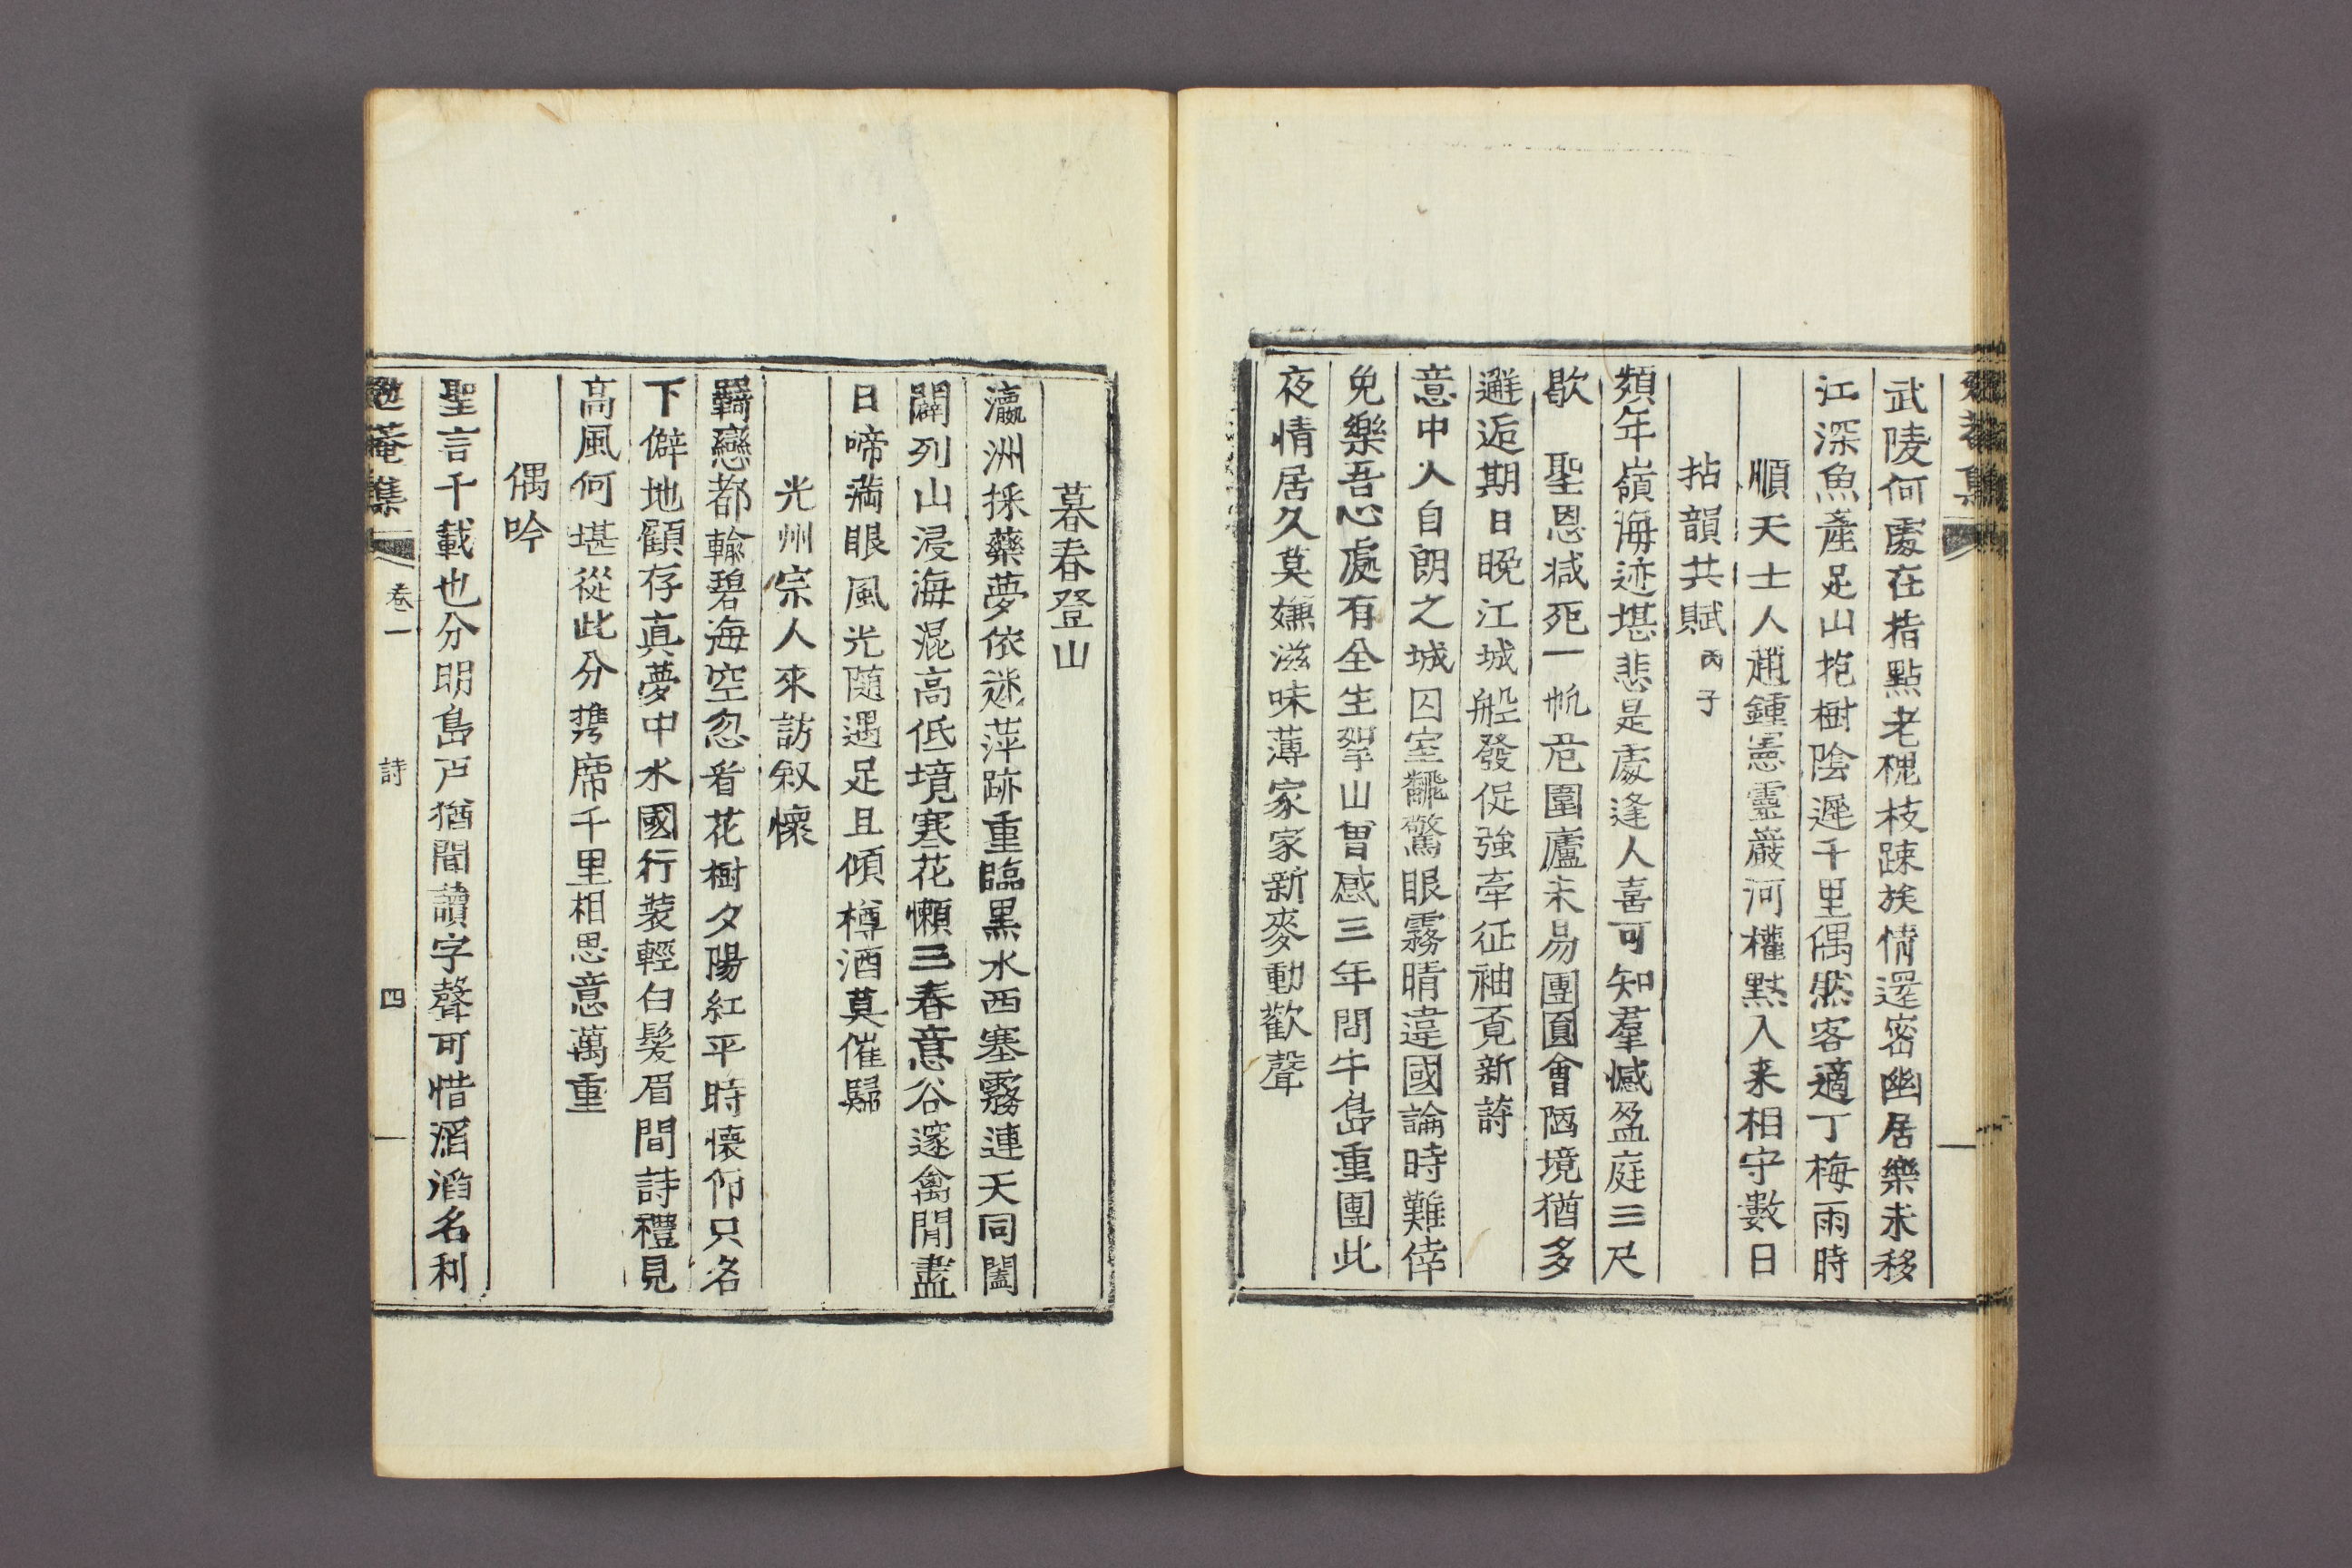 武陵何處在指點老槐枝踈族情還密幽居樂未移
江深魚產足山抱樹陰遲千里偶然客適丁梅雨時
順天士人趙鍾憲靈巖河權黙入来相守數日
拈韻共賦丙子
頻年嶺海迹堪悲是處逢人喜可知羣憾盈庭三尺
歇聖恩减死一帆危圍廬未易團圓會陋境猶多
邂逅期日晚江城船發促強牽征袖覔新詩
意中人自朗之城囚室飜驚眼霧晴違國論時難倖
免樂吾心處有全生挐山曾感三年問牛島重團此
夜情居久莫嫌滋味薄家家新麥動歡聲
暮春登山
瀛洲採藥夢依迷萍跡重臨黑水西塞霧連天同闔
闢列山浸海混高低境寒花懶三春意谷邃禽閒盡
日啼滿眼風光隨遇足且傾樽酒莫催歸
光州宗人來訪叙懷
羇戀都輸碧海空忽看花樹夕陽紅平時懷仰只名
下僻地顧存真夢中水國行裝輕白髮眉間詩禮見
高風何堪從此分携席千里相思意萬重
偶吟
聖言千載也分明島户猶聞讀字聲可惜滔滔名利
菴集 卷一 詩 四